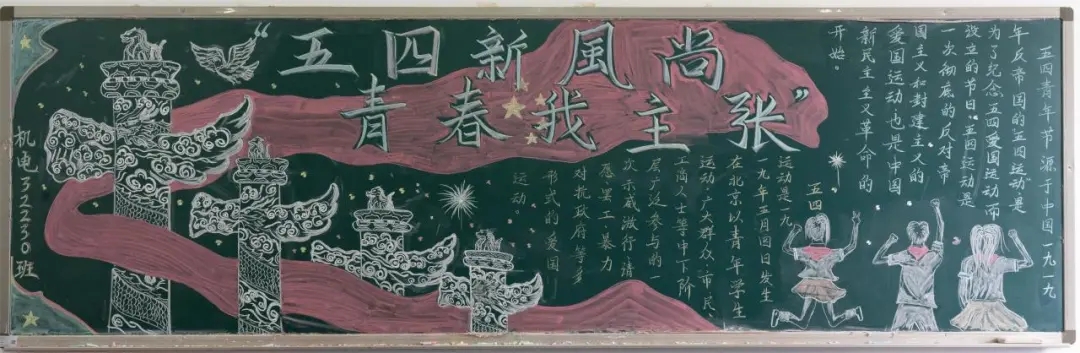 “五四新風尚
青春我主张”
机电32230班
五四青年节源于中国一九一九
年反帝国的五四运动是
为了纪念五四爱国运动而
设立的节日。五四运动是
一次彻底的反对帝
国主义和封建主义的
爱国运动也是中国
新民主主义革命的
开始。
五四
运动是一九
一九年五月四日发生
在北京以青年学生
运动，广大群众、市民、
工商人士等中下阶
层广泛参与的一
次示威游行、请
愿罢工、暴力
对抗政府等多
形式的爱国
运动。